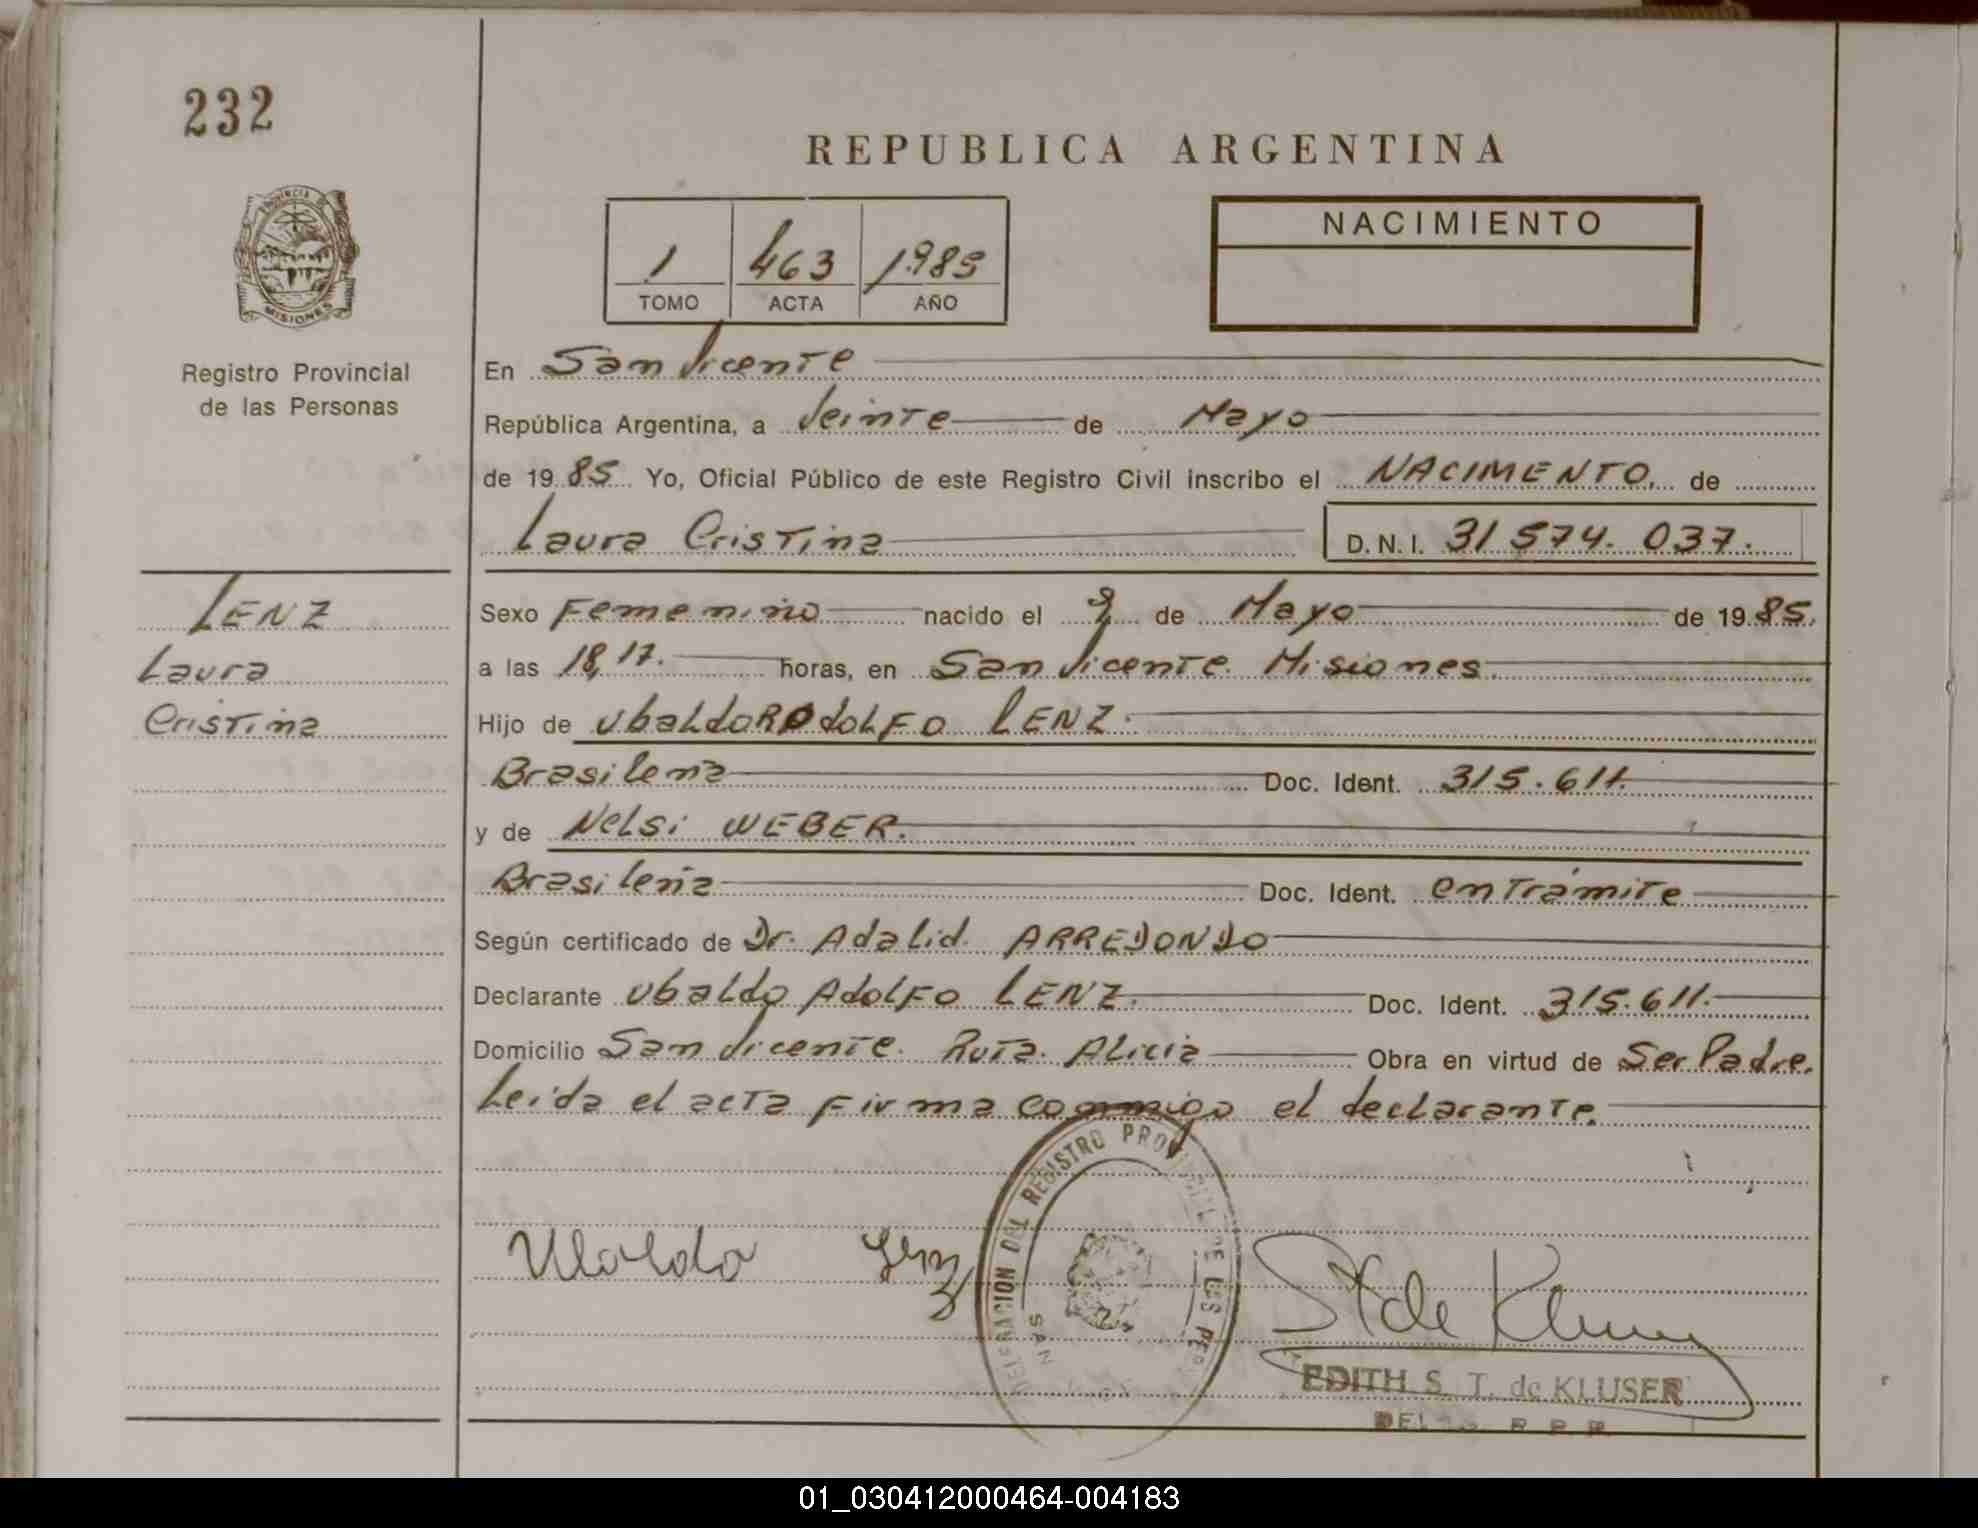 232
REPUBLICA ARGENTINA
PROVINCIA DE
MISIONES
1 463 1985
TOMO ACTA AÑO
NACIMIENTO
Registro Provincial
de las Personas
En San Vicente
República Argentina, a Veinte de Mayo
de 1985 Yo, Oficial Público de este Registro Civil inscribo el NACIMENTO. de
Laura Cristina D.N.I. 31 574. 037.
LENZ
Laura
Cristina
Sexo Femenino nacido el 9 de Mayo de 1985.
a las 18,17. horas, en San Vicente. Misiones.
Hijo de Ubaldo RODOLFO LENZ.
Brasileña Doc. Ident. 315.611.
y de Nelsi WEBER.
Brasileña Doc. Ident. en Trámite
Según certificado de Dr. Adalid. ARREDONDO
Declarante Ubaldo AdoLFO LENZ. Doc. Ident. 315.611.
Domicilio San Vicente. Ruta. Alicia Obra en virtud de Ser Padre.
Leida el acta Firma conmigo el declarante.
DELEGACION DEL REGISTRO PROVINCIAL DE LAS PER
SAN
Ubaldo Lenz
ST de Kluser
EDITH S. T. de KLUSER
R P P
01_030412000464-004183